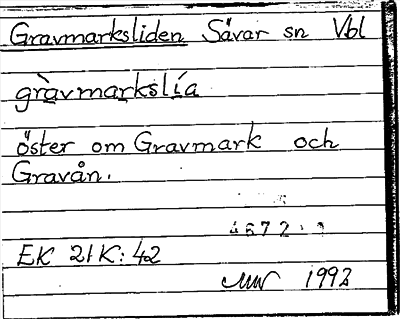 Gravmarksliden Sävar sn Vbl
gràvmarkslía
öster om Gravmark och
Gravån.
4672
EK 21K:42
1992